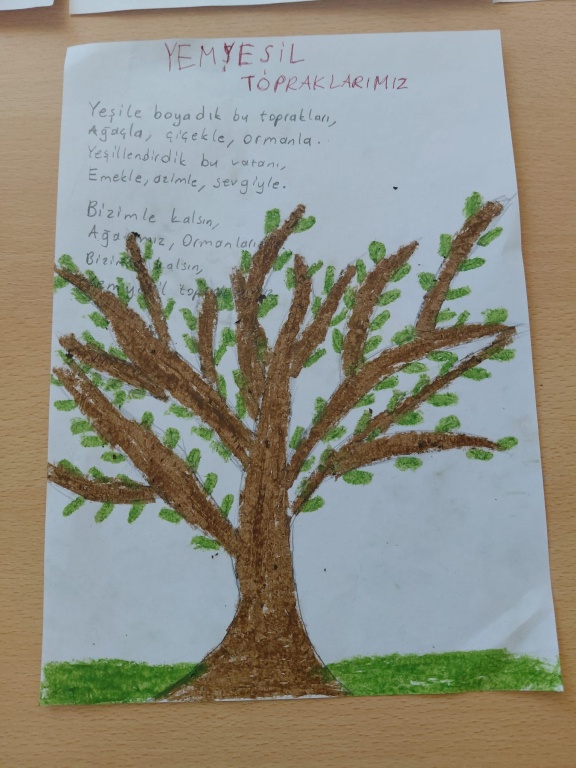 YEMYEŞİL
TOPRAKLARIMIZ
Yeşile boyadık bu toprakları,
Ağaçla, çiçekle, ormanla.
Yeşillendirdik bu vatanı,
Emekle, azimle, sevgiyle.
Bizimle kalsın,
Ormanları
kalsın,